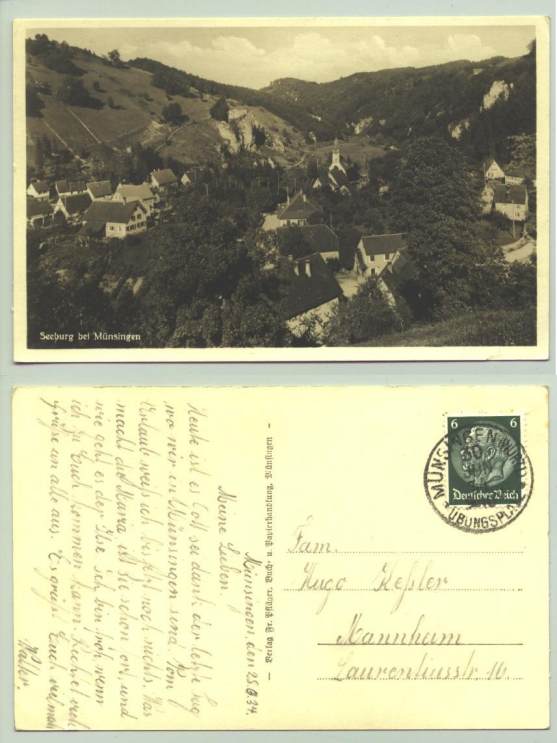 Seeburg bei Münsingen
Münsingen, den 25.8.34.
Meine Lieben
Heute ist es Gott sei dank der letzte Tag
wo wir in Münsingen sind. Vom
Urlaub weiß ich bis jetzt noch nichts. Was
macht die Maria ist sie schon fort, und
wie geht es der Ilse ich bin froh wenn
ich zu Euch kommen kann. Recht viele
Grüße an alle aus. Es grüßt Euch vielmals
Walter.
— Verlag Fr. Pflüger, Buch- u. Papierhandlung, Münsingen —
6 6
Deutsches Reich
MÜNSINGEN (WÜRTT)
ÜBUNGSPL
Fam.
Hugo Keßler
Mannheim
Laurentiusstr. 16.